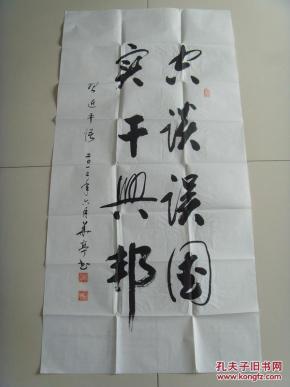 空谈误国
实干兴邦
习近平语 二〇一三年六月
孔夫子旧书网